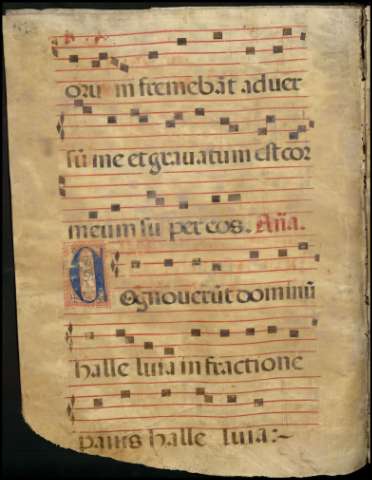 orum fremebāt aduer
sū me et grauatum est cor
meum su per eos. Aña.
Cognouerūt dominū
halle luia in fractione
panis halle luia:~